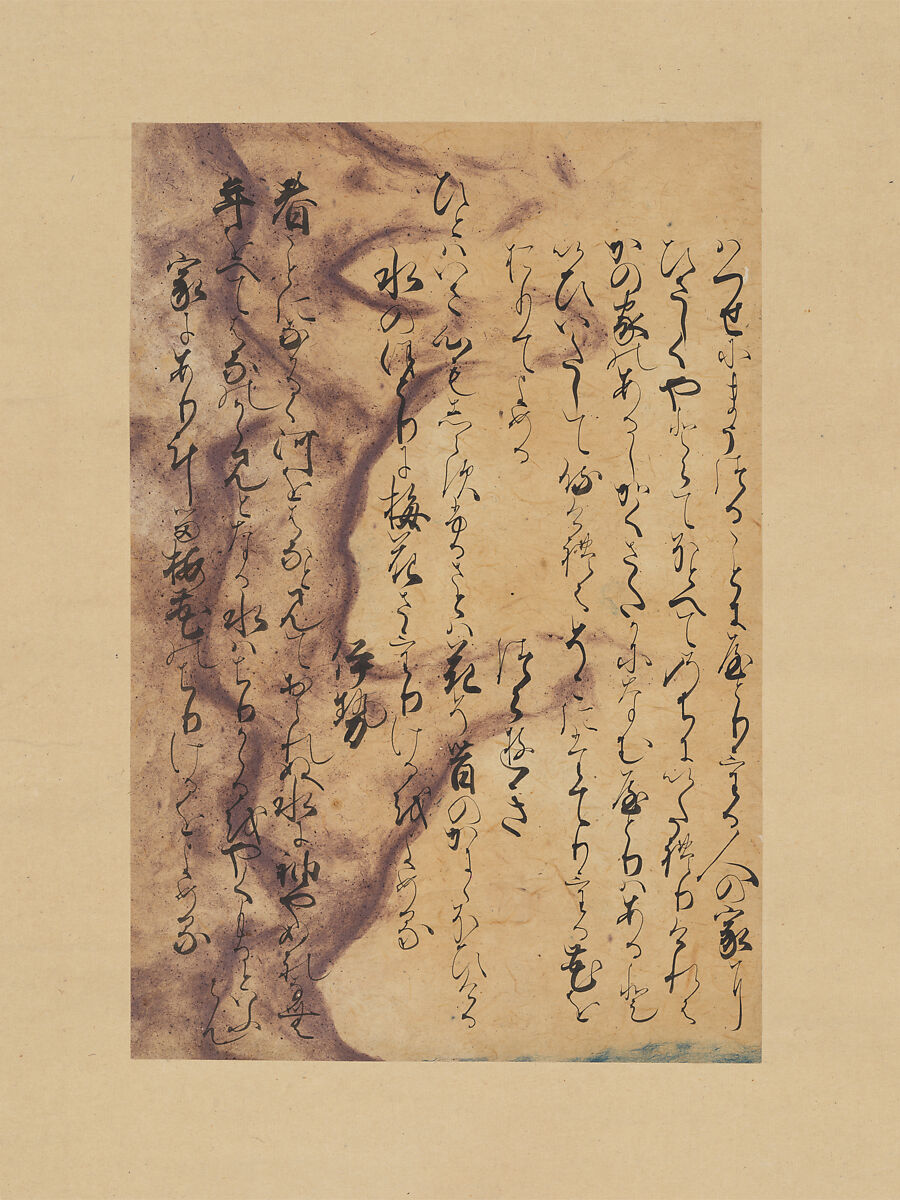 はつせにまうつることにやとりける人の家に
ひさしくやとらてほとへてのちにいたれりけれは
かの家のあるしかくさたかになむやとりはあると
いひいたして侍けれはそこにたてりける花を
おりてよめる
つらゆき
ひとはいさ心もしらすふるさとは花そ昔のかにゝほひける
水のほとりに梅花さけりけるをよめる
伊勢
春ことになかるゝ河をはなと見ておられぬ水に袖やぬれなむ
年をへてはなのかゝみとなる水はちりかゝるをやくもるといふらん
家にありける梅花のちりけるをよめる